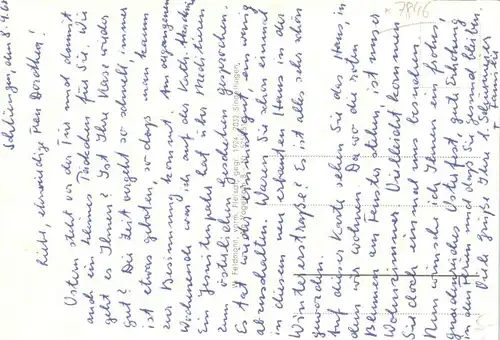 Schliengen, den 8.4.
Liebe, ehrwürdige Frau Dorothea!
Ostern steht vor der Tür und damit
auch ein kleines Päckchen für Sie. Wie
geht es Ihnen? Ist Ihre Reise wieder
gut? Die Zeit vergeht so schnell, immer
ist etwas geboten, so dass man kaum
zur Besinnung kommt. Am vergangenen
Wochenende war ich auf der
Ein Jesuitenpater hat über Meditieren
zum österlichen Geschehen gesprochen.
Es tat wieder gut, ein wenig
abzuschalten. Waren Sie schon einmal
in diesem neu erbauten Haus in der
Wintererstraße? Es ist alles sehr schön
geworden.
Auf dieser Karte sehen Sie das Haus, in
dem wir wohnen. Da wo die roten
Blumen am Fenster stehen, ist unser
Wohnzimmer. Vielleicht kommen
Sie doch einmal uns besuchen.
Nun wünsche ich Ihnen ein frohes,
gnadenreiches Osterfest, gute Erholung
in den Ferien und daß Sie gesund bleiben.
Viele Grüße Ihre
7846